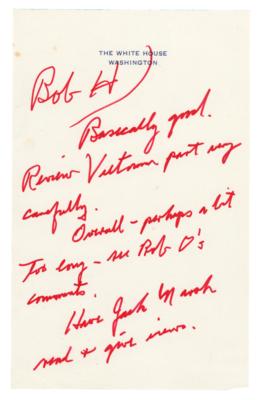 THE WHITE HOUSE
WASHINGTON
Bob H
Basically good.
Review Vietnam part very
carefully.
Overall - perhaps a bit
too long - see Rob O's
comments.
Have Jack Marsh
read + give views.